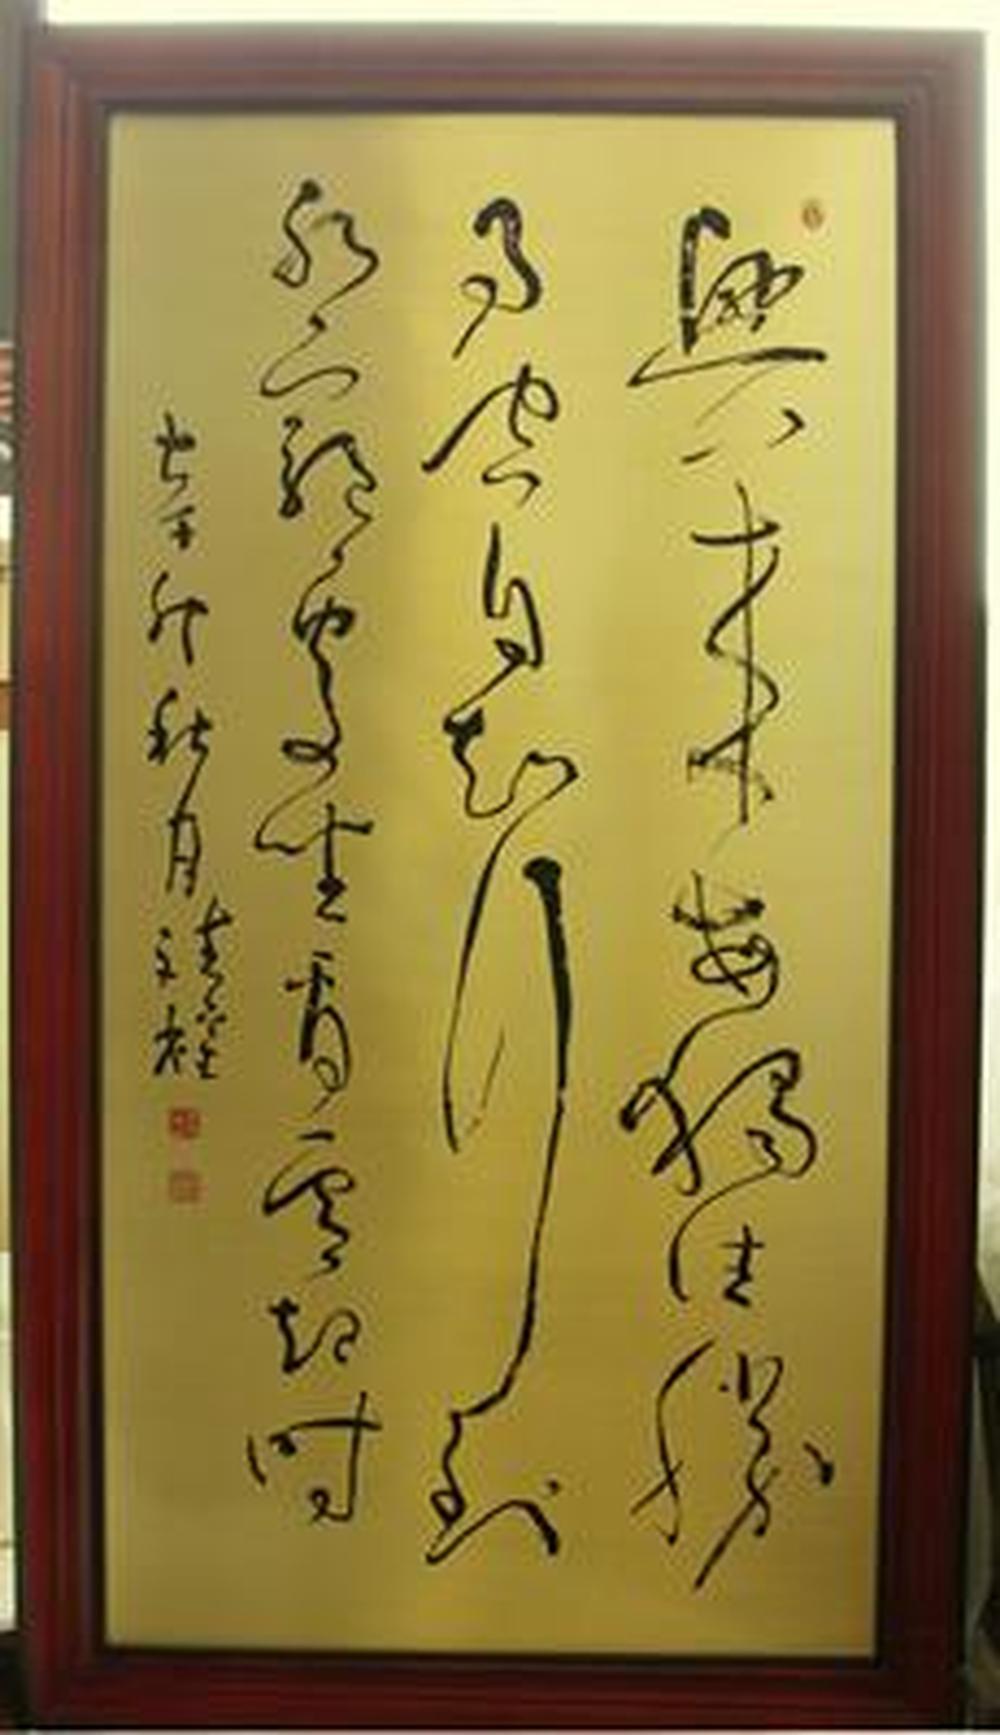 興來每獨往勝
事空自知行到
水窮處坐看雲起時
卯秋月